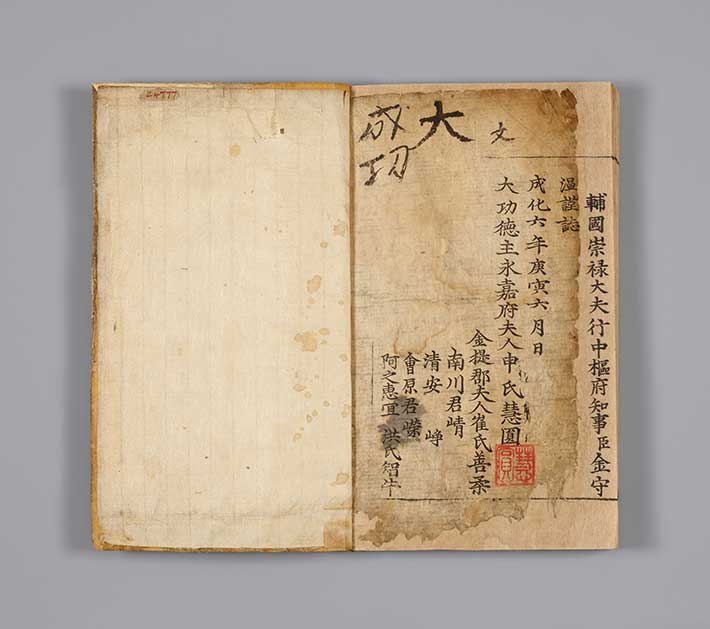 輔國崇禄大夫行中樞府知事臣金守
温謹誌
成化六年庚寅六月日
大功德主永嘉府夫人申氏慧圓
慧圓
金提郡夫人崔氏善柔
南川君崝
清安 崢
會原君嶸
阿之惠宜 洪氏智牛
文
大
成功
24777